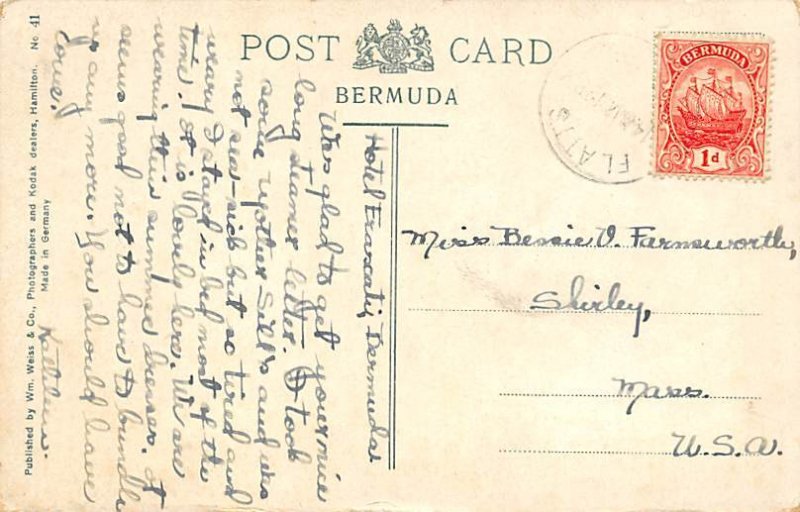 POST CARD
BERMUDA
BERMUDA
1d
FLATTS
Hotel Frascati, Bermuda
Was glad to get your nice
long steamer letter. I took
some Mother Sill's and was
not sea-sick but so tired and
weary I stayed in bed most of the
time. It is lovely here. We are
wearing thin summer dresses. It
seems good not to have to bundle
up any more. You should have
come!
Kathleen.
Miss Bessie V. Farnsworth,
Shirley,
Mass.
U.S.A.
Published by Wm. Weiss & Co., Photographers and Kodak dealers, Hamilton. No 41
Made in Germany